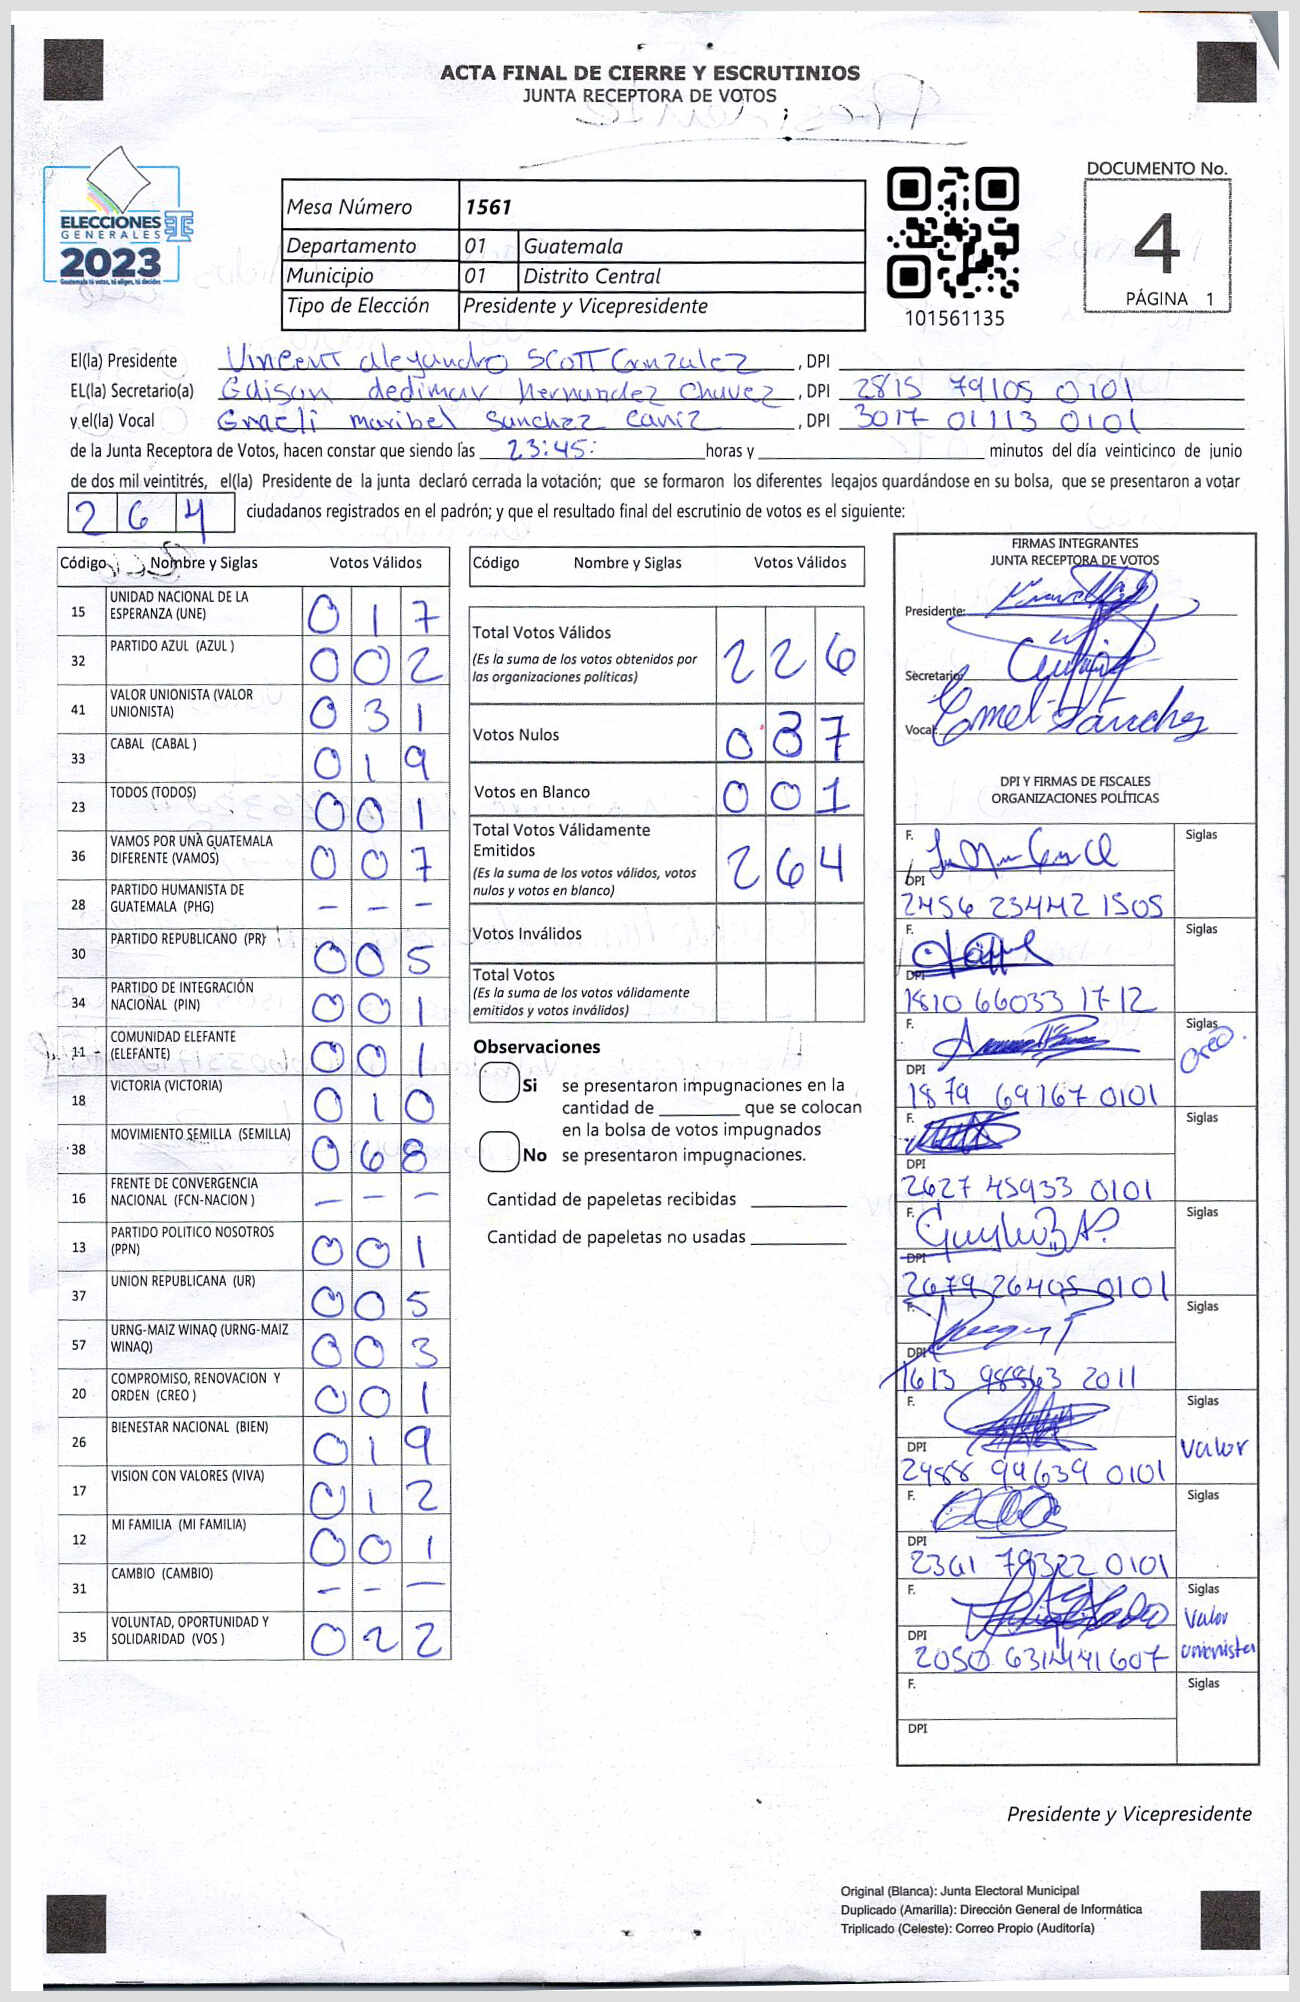 ACTA FINAL DE CIERRE Y ESCRUTINIOS
JUNTA RECEPTORA DE VOTOS
ELECCIONES
GENERALES
2023
Guatemala tú votas, tú eliges, tú decides
Mesa Número 1561
Departamento 01 Guatemala
Municipio 01 Distrito Central
Tipo de Elección Presidente y Vicepresidente
101561135
DOCUMENTO No.
4
PÁGINA 1
El(la) Presidente Vincent alejandro Scott Gonzalez, DPI
EL(la) Secretario(a) Edison dedimar Hernandez Chavez, DPI 2815 79105 0101
y el(la) Vocal Emeli maribel Sanchez Caniz, DPI 3017 01113 0101
de la Junta Receptora de Votos, hacen constar que siendo las 23:45: horas y minutos del día veinticinco de junio
de dos mil veintitrés, el(la) Presidente de la junta declaró cerrada la votación; que se formaron los diferentes legajos guardándose en su bolsa, que se presentaron a votar
264 ciudadanos registrados en el padrón; y que el resultado final del escrutinio de votos es el siguiente:
Código Nombre y Siglas Votos Válidos
15 UNIDAD NACIONAL DE LA ESPERANZA (UNE) 017
32 PARTIDO AZUL (AZUL ) 002
41 VALOR UNIONISTA (VALOR UNIONISTA) 031
33 CABAL (CABAL ) 019
23 TODOS (TODOS) 001
36 VAMOS POR UNA GUATEMALA DIFERENTE (VAMOS) 007
28 PARTIDO HUMANISTA DE GUATEMALA (PHG) – – –
30 PARTIDO REPUBLICANO (PR) 005
34 PARTIDO DE INTEGRACIÓN NACIONAL (PIN) 001
11 COMUNIDAD ELEFANTE (ELEFANTE) 001
18 VICTORIA (VICTORIA) 010
38 MOVIMIENTO SEMILLA (SEMILLA) 068
16 FRENTE DE CONVERGENCIA NACIONAL (FCN-NACION ) – – –
13 PARTIDO POLITICO NOSOTROS (PPN) 001
37 UNION REPUBLICANA (UR) 005
57 URNG-MAIZ WINAQ (URNG-MAIZ WINAQ) 003
20 COMPROMISO, RENOVACION Y ORDEN (CREO ) 001
26 BIENESTAR NACIONAL (BIEN) 019
17 VISION CON VALORES (VIVA) 012
12 MI FAMILIA (MI FAMILIA) 001
31 CAMBIO (CAMBIO) – – –
35 VOLUNTAD, OPORTUNIDAD Y SOLIDARIDAD (VOS ) 022
Código Nombre y Siglas Votos Válidos
Total Votos Válidos 226
(Es la suma de los votos obtenidos por
las organizaciones políticas)
Votos Nulos 037
Votos en Blanco 001
Total Votos Válidamente
Emitidos 264
(Es la suma de los votos válidos, votos
nulos y votos en blanco)
Votos Inválidos
Total Votos
(Es la suma de los votos válidamente
emitidos y votos inválidos)
Observaciones
Si se presentaron impugnaciones en la
cantidad de que se colocan
en la bolsa de votos impugnados
No se presentaron impugnaciones.
Cantidad de papeletas recibidas
Cantidad de papeletas no usadas
FIRMAS INTEGRANTES
JUNTA RECEPTORA DE VOTOS
Presidente:
Secretario:
Vocal: Emeli Sanchez
DPI Y FIRMAS DE FISCALES
ORGANIZACIONES POLÍTICAS
F. Siglas
DPI
2456 23442 1505
F. Siglas
DPI
1810 66033 1712
F. Siglas
creo.
DPI
1879 69767 0101
F. Siglas
DPI
2627 45933 0101
F. Siglas
DPI
2679 26405 0101
F. Siglas
DPI
1613 98863 2011
F. Siglas
Valor
DPI
2988 94639 0101
F. Siglas
DPI
2361 79322 0101
F. Siglas
Valor
unionista
DPI
2050 63144 1607
F. Siglas
DPI
Presidente y Vicepresidente
Original (Blanca): Junta Electoral Municipal
Duplicado (Amarilla): Dirección General de Informática
Triplicado (Celeste): Correo Propio (Auditoría)